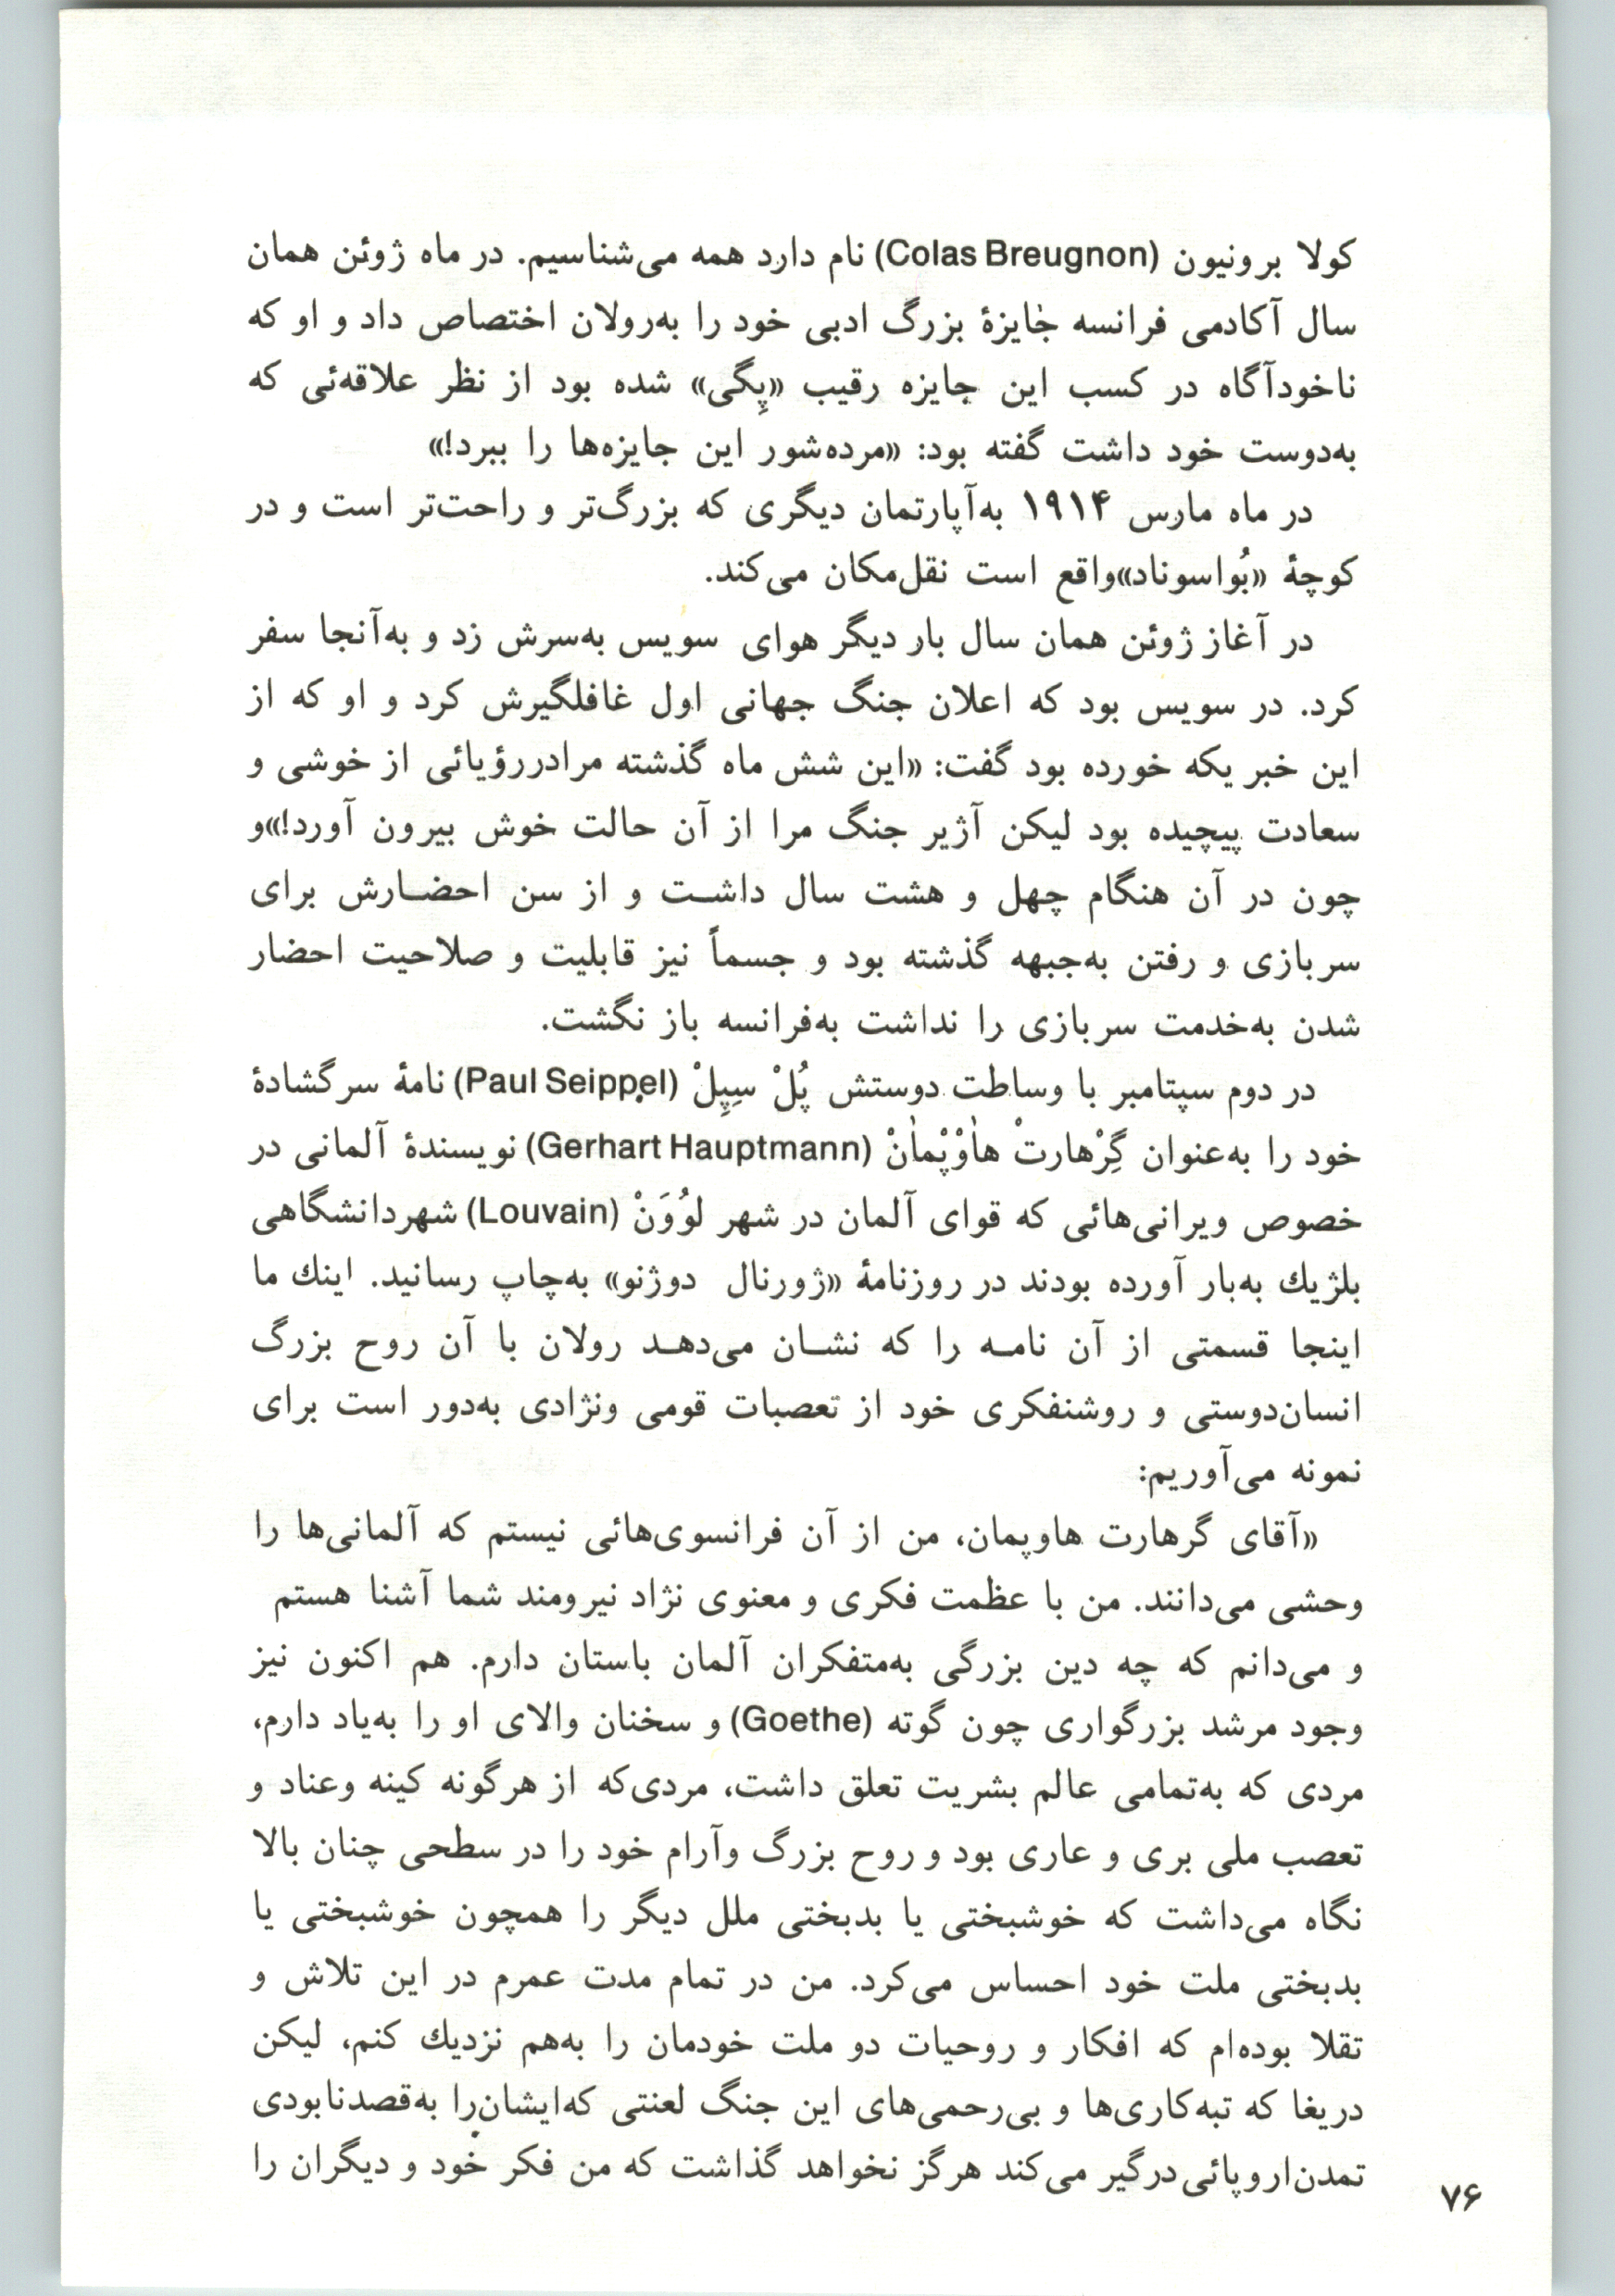 کولا برونیون (Colas Breugnon) نام دارد همه می‌شناسیم. در ماه ژوئن همان
سال آکادمی فرانسه جایزهٔ بزرگ ادبی خود را به‌رولان اختصاص داد و او که
ناخودآگاه در کسب این جایزه رقیب «پِگی» شده بود از نظر علاقه‌ئی که
به‌دوست خود داشت گفته بود: «مرده‌شور این جایزه‌ها را ببرد!»
در ماه مارس ۱۹۱۴ به‌آپارتمان دیگری که بزرگ‌تر و راحت‌تر است و در
کوچهٔ «بُواسوناد»واقع است نقل‌مکان می‌کند.
در آغاز ژوئن همان سال بار دیگر هوای سویس به‌سرش زد و به‌آنجا سفر
کرد. در سویس بود که اعلان جنگ جهانی اول غافلگیرش کرد و او که از
این خبر یکه خورده بود گفت: «این شش ماه گذشته مرادررؤیائی از خوشی و
سعادت پیچیده بود لیکن آژیر جنگ مرا از آن حالت خوش بیرون آورد!»و
چون در آن هنگام چهل و هشت سال داشت و از سن احضارش برای
سربازی و رفتن به‌جبهه گذشته بود و جسماً نیز قابلیت و صلاحیت احضار
شدن به‌خدمت سربازی را نداشت به‌فرانسه باز نگشت.
در دوم سپتامبر با وساطت دوستش پُلْ سِپِلْ (Paul Seippel) نامهٔ سرگشادهٔ
خود را به‌عنوان گِرْهارتْ هاوْپْمانْ (Gerhart Hauptmann) نویسندهٔ آلمانی در
خصوص ویرانی‌هائی که قوای آلمان در شهر لوُوَنْ (Louvain) شهردانشگاهی
بلژیك به‌بار آورده بودند در روزنامهٔ «ژورنال دوژنو» به‌چاپ رسانید. اینك ما
اینجا قسمتی از آن نامه را که نشان می‌دهد رولان با آن روح بزرگ
انسان‌دوستی و روشنفکری خود از تعصبات قومی ونژادی به‌دور است برای
نمونه می‌آوریم:
«آقای گرهارت هاوپمان، من از آن فرانسوی‌هائی نیستم که آلمانی‌ها را
وحشی می‌دانند. من با عظمت فکری و معنوی نژاد نیرومند شما آشنا هستم
و می‌دانم که چه دین بزرگی به‌متفکران آلمان باستان دارم. هم اکنون نیز
وجود مرشد بزرگواری چون گوته (Goethe) و سخنان والای او را به‌یاد دارم،
مردی که به‌تمامی عالم بشریت تعلق داشت، مردی‌که از هرگونه کینه وعناد و
تعصب ملی بری و عاری بود و روح بزرگ وآرام خود را در سطحی چنان بالا
نگاه می‌داشت که خوشبختی یا بدبختی ملل دیگر را همچون خوشبختی یا
بدبختی ملت خود احساس می‌کرد. من در تمام مدت عمرم در این تلاش و
تقلا بوده‌ام که افکار و روحیات دو ملت خودمان را به‌هم نزدیك کنم، لیکن
دریغا که تبه‌کاری‌ها و بی‌رحمی‌های این جنگ لعنتی که‌ایشان‌را به‌قصدنابودی
تمدن‌اروپائی‌درگیر می‌کند هرگز نخواهد گذاشت که من فکر خود و دیگران را
۷۶